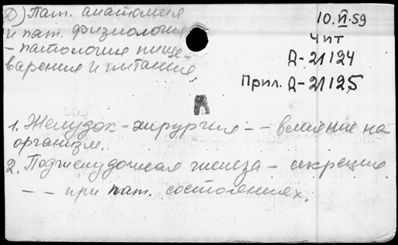 Д) Пат. анатомия
и пат. физиология
– патология пище-
варения и питания.
10.VI.59
Чит
Д-21124
Прил. Д-21125
Д
1. Желудок – хирургия – – влияние на
организм.
2. Поджелудочная железа – секреция
– – при пат. состояниях.